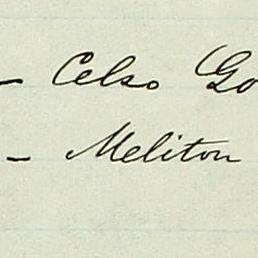 – Celso Go
– Meliton